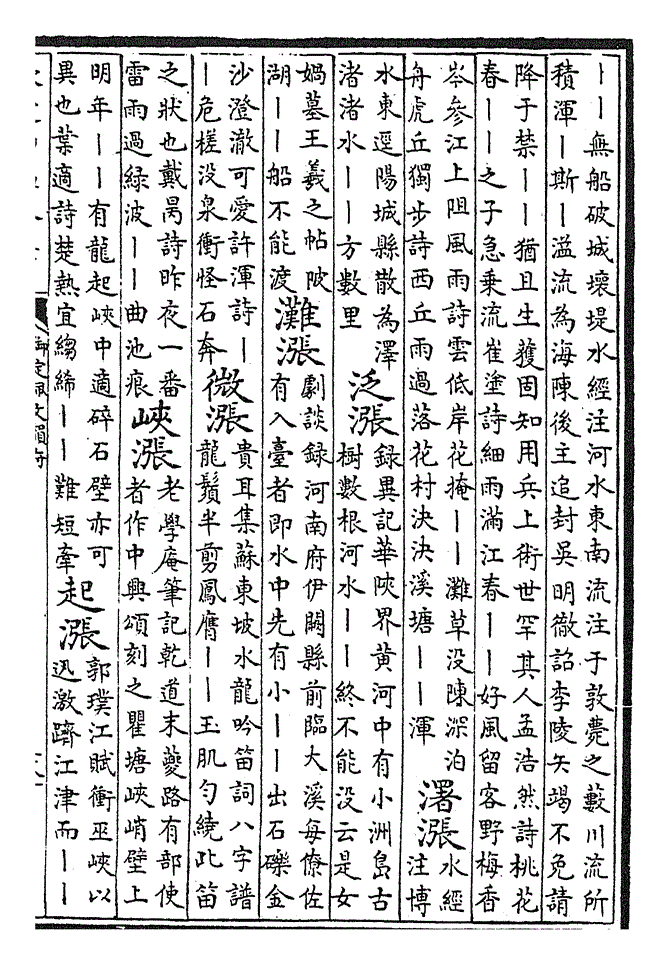 丨丨無船破城壞堤水經注河水東南流注于敦薨之藪川流所
積渾丨斯丨溢流為海陳後主追封吳明徹詔李陵矢竭不免請
降于禁丨丨猶且生獲固知用兵上術世罕其人孟浩然詩桃花
春丨丨之子急乗流崔塗詩細雨滿江春丨丨好風留客野梅香
岑參江上阻風雨詩雲低岸花掩丨丨灘草没陳深泊
舟虎丘獨步詩西丘雨過落花村決決溪塘丨丨渾
瀦漲
水經
注博
水東逕陽城縣散為澤
渚渚水丨丨方數里
泛漲
錄異記華陜界黃河中有小洲島古
樹數根河水丨丨終不能没云是女
媧墓王羲之帖陂
湖丨丨船不能渡
灘漲
劇談録河南府伊闕縣前臨大溪每僚佐
有入臺者即水中先有小丨丨出石礫金
沙澄澈可愛許渾詩丨
丨危槎没泉衝怪石奔
微漲
貴耳集蘇東坡水龍吟笛詞八字譜
龍鬚半剪鳳膺丨丨玉肌勻繞此笛
之狀也戴昺詩昨夜一番
雷雨過緑波丨丨曲池痕
峽漲
老學庵筆記乾道末夔路有部使
者作中興頌刻之瞿塘峽峭壁上
明年丨丨有龍起峽中適碎石壁亦可
異也葉適詩楚熱宜縐絺丨丨難短牽
起漲
郭璞江賦衝巫峽以
迅激躋江津而丨丨
御定佩文韻府